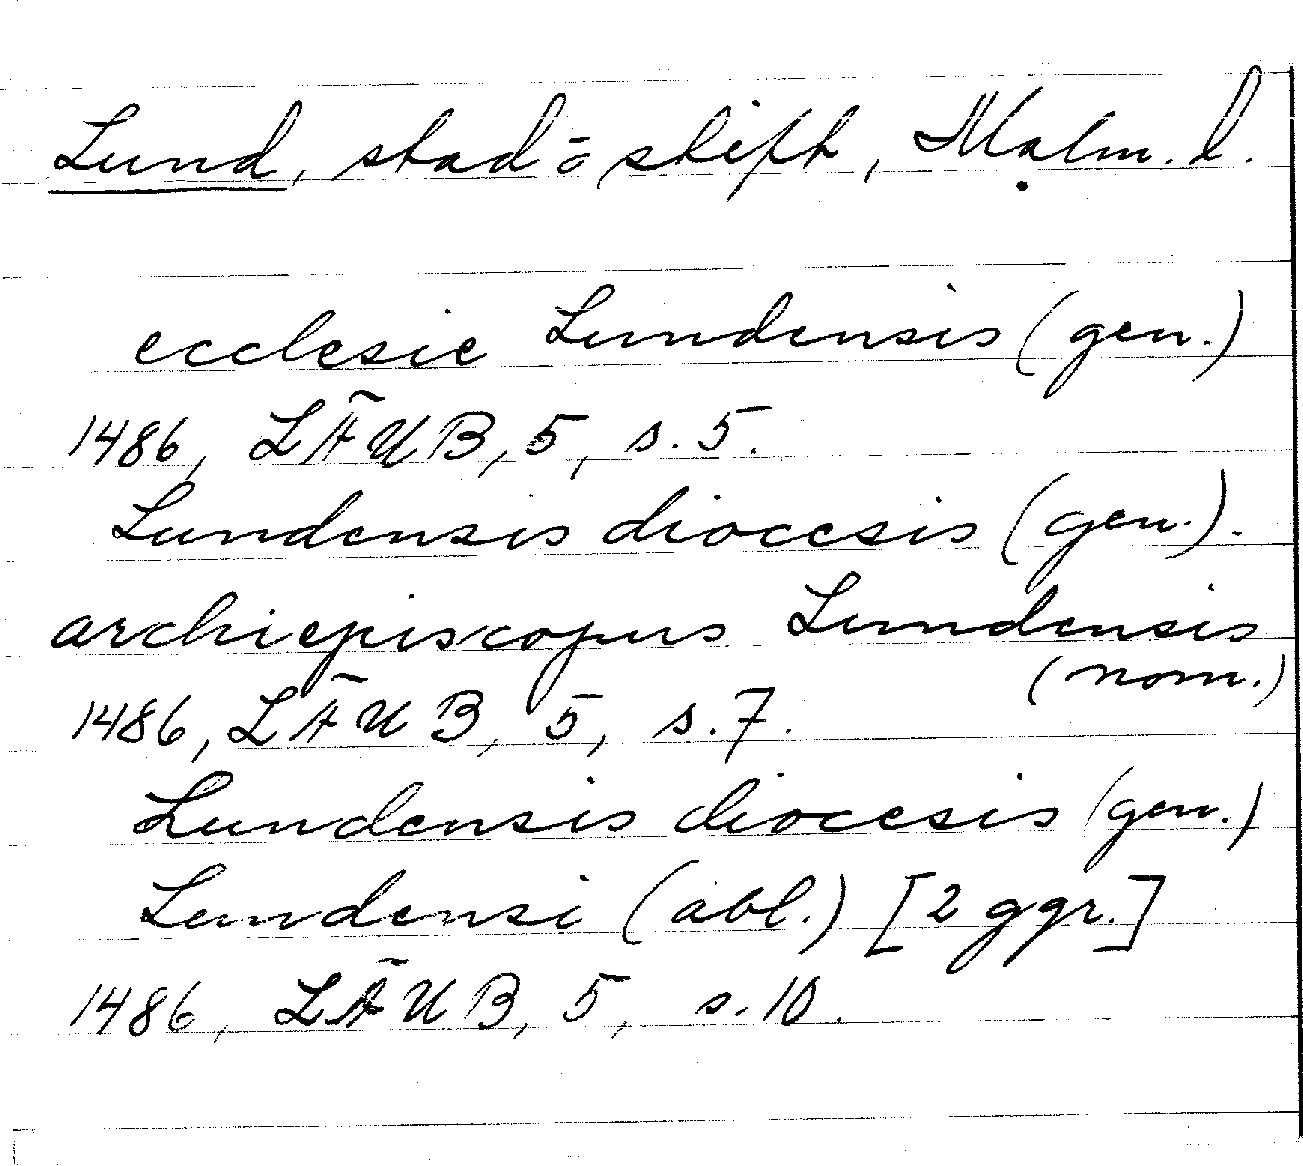 Lund, stad o skift, Malm. l.
ecclesie Lundensis (gen.)
1486, LÄUB, 5, s. 5.
Lundensis diocesis (gen.).
archiepiscopus Lundensis
(nom.)
1486, LÄUB, 5, s. 7.
Lundensis diocesis (gen.)
Lundensi (abl.) [2 ggr.]
1486, LÄUB, 5, s. 10.